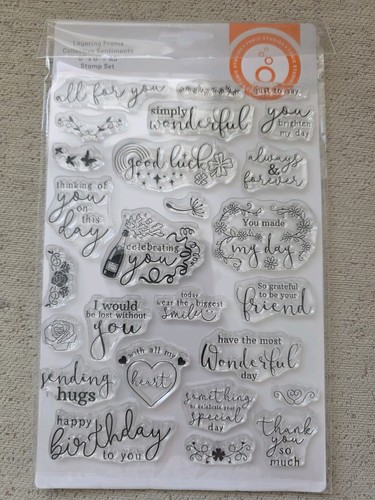 Layering Frame
Collective Sentiments
Stamp Set
all for you
just to say...
simply
wonderful
you
brighten
my day
good luck
always
&
forever
thinking of
you
on
this
day
celebrating
you
You made
my day
So grateful
to be your
friend
I would
be lost without
you
today
wear the biggest
smile
have the most
Wonderful
day
with all my
heart
sending
hugs
something
to celebrate your
special
day
happy
birthday
to you
thank
you
so
much